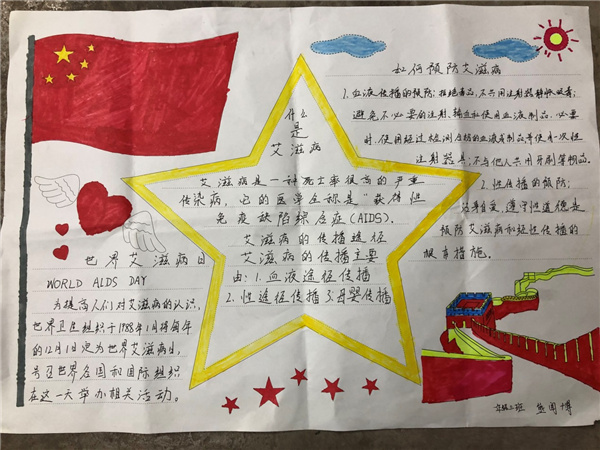 世界艾滋病日
WORLD ALDS DAY
为提高人们对艾滋病的认识,
世界卫生组织于1988年1月将每年
的12月1日定为世界艾滋病日,
号召世界各国和国际组织
在这一天举办相关活动。
什么
是
艾滋病
艾滋病是一种死亡率很高的严重
传染病,它的医学全称是"获得性
免疫缺陷综合症(AIDS).
艾滋病的传播途径
艾滋病的传播主要
由:1.血液途径传播
2.性途径传播 3.母婴传播
如何预防艾滋病
1.血液传播的预防:拒绝毒品,不共用注射器静脉吸毒;
避免不必要的注射、输血和使用血液制品,必要
时,使用经过检测合格的血液
注射器具;不与他人共用牙刷
2.性传播的预防:
洁身自爱、遵守性道德是
预防艾滋病和经性传播的
根本措施。